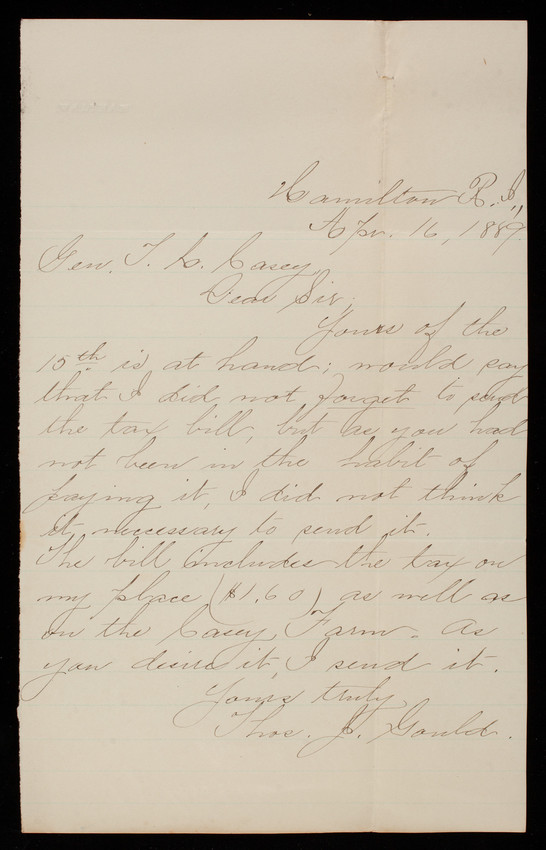 Hamilton R.I.,
Apr. 16, 1889.
Gen. T. L. Casey
Dear Sir;
Yours of the
15th is at hand; would say
that I did not forget to send
the tax bill, but as you had
not been in the habit of
paying it, I did not think
it necessary to send it.
The bill includes the tax on
my place ($1.60) as well as
on the Casey Farm. As
you desire it, I send it.
Yours truly
Thos. J. Gould.